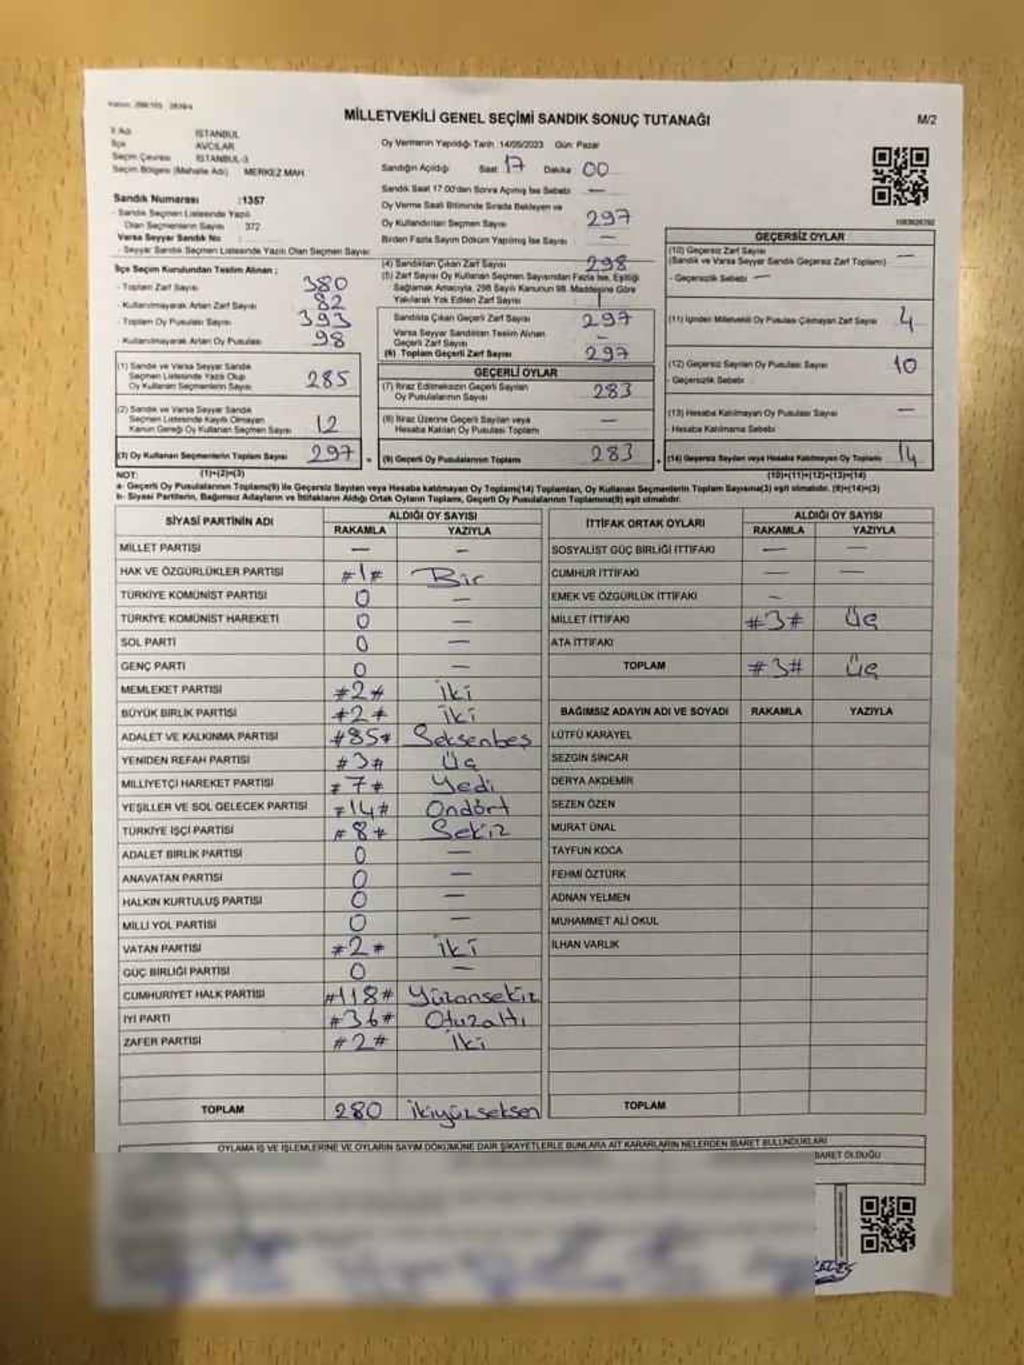 MİLLETVEKİLİ GENEL SEÇİMİ SANDIK SONUÇ TUTANAĞI
M/2
İl Adı İSTANBUL
İlçe AVCILAR
Seçim Çevresi İSTANBUL-3
Seçim Bölgesi (Mahalle Adı) MERKEZ MAH.
Sandık Numarası :1357
- Sandık Seçmen Listesinde Yazılı
Olan Seçmenlerin Sayısı 372
Varsa Seyyar Sandık No :
- Seyyar Sandık Seçmen Listesinde Yazılı Olan Seçmen Sayısı
İlçe Seçim Kurulundan Teslim Alınan ;
- Toplam Zarf Sayısı 380
- Kullanılmayarak Artan Zarf Sayısı 82
- Toplam Oy Pusulası Sayısı 393
- Kullanılmayarak Artan Oy Pusulası 98
(1) Sandık ve Varsa Seyyar Sandık
Seçmen Listesinde Yazılı Olup
Oy Kullanan Seçmenlerin Sayısı 285
(2) Sandık ve Varsa Seyyar Sandık
Seçmen Listesinde Kayıtlı Olmayan
Kanun Gereği Oy Kullanan Seçmen Sayısı 12
(3) Oy Kullanan Seçmenlerin Toplam Sayısı 297
(1)+(2)=(3)
Oy Vermenin Yapıldığı Tarih :14/05/2023 Gün: Pazar
Sandığın Açıldığı Saat 17 Dakika 00
Sandık Saat 17.00'dan Sonra Açılmış İse Sebebi —
Oy Verme Saati Bitiminde Sırada Bekleyen ve
Oy Kullandırılan Seçmen Sayısı 297
Birden Fazla Sayım Döküm Yapılmış İse Sayısı —
(4) Sandıktan Çıkan Zarf Sayısı 298
(5) Zarf Sayısı Oy Kullanan Seçmen Sayısından Fazla İse, Eşitliği
Sağlamak Amacıyla, 298 Sayılı Kanunun 98. Maddesine Göre
Yakılarak Yok Edilen Zarf Sayısı 1
Sandıkta Çıkan Geçerli Zarf Sayısı 297
Varsa Seyyar Sandıktan Teslim Alınan
Geçerli Zarf Sayısı —
(6) Toplam Geçerli Zarf Sayısı 297
GEÇERLİ OYLAR
(7) İtiraz Edilmeksizin Geçerli Sayılan
Oy Pusulalarının Sayısı 283
(8) İtiraz Üzerine Geçerli Sayılan veya
Hesaba Katılan Oy Pusulası Toplamı —
(9) Geçerli Oy Pusulalarının Toplamı 283
GEÇERSİZ OYLAR
(10) Geçersiz Zarf Sayısı
(Sandık ve Varsa Seyyar Sandık Geçersiz Zarf Toplamı) —
- Geçersizlik Sebebi —
(11) İçinden Milletvekili Oy Pusulası Çıkmayan Zarf Sayısı 4
(12) Geçersiz Sayılan Oy Pusulası Sayısı 10
- Geçersizlik Sebebi
(13) Hesaba Katılmayan Oy Pusulası Sayısı —
Hesaba Katılmama Sebebi
(14) Geçersiz Sayılan veya Hesaba Katılmayan Oy Toplamı 14
(10)+(11)+(12)+(13)=(14)
NOT:
a- Geçerli Oy Pusulalarının Toplamı(9) ile Geçersiz Sayılan veya Hesaba katılmayan Oy Toplamı(14) Toplamları, Oy Kullanan Seçmenlerin Toplam Sayısına(3) eşit olmalıdır. (9)+(14)=(3)
b- Siyasi Partilerin, Bağımsız Adayların ve İttifakların Aldığı Ortak Oyların Toplamı, Geçerli Oy Pusulalarının Toplamına(9) eşit olmalıdır.
SİYASİ PARTİNİN ADI ALDIĞI OY SAYISI
RAKAMLA YAZIYLA
MİLLET PARTİSİ — —
HAK VE ÖZGÜRLÜKLER PARTİSİ #1# Bir
TÜRKİYE KOMÜNİST PARTİSİ 0 —
TÜRKİYE KOMÜNİST HAREKETİ 0 —
SOL PARTİ 0 —
GENÇ PARTİ 0 —
MEMLEKET PARTİSİ #2# İki
BÜYÜK BİRLİK PARTİSİ #2# İki
ADALET VE KALKINMA PARTİSİ #85# Seksenbeş
YENİDEN REFAH PARTİSİ #3# Üç
MİLLİYETÇİ HAREKET PARTİSİ #7# Yedi
YEŞİLLER VE SOL GELECEK PARTİSİ #14# Ondört
TÜRKİYE İŞÇİ PARTİSİ #8# Sekiz
ADALET BİRLİK PARTİSİ 0 —
ANAVATAN PARTİSİ 0 —
HALKIN KURTULUŞ PARTİSİ 0 —
MİLLİ YOL PARTİSİ 0 —
VATAN PARTİSİ #2# İki
GÜÇ BİRLİĞİ PARTİSİ 0 —
CUMHURİYET HALK PARTİSİ #118# Yüzonsekiz
İYİ PARTİ #36# Otuzaltı
ZAFER PARTİSİ #2# İki
TOPLAM 280 ikiyüzseksen
İTTİFAK ORTAK OYLARI ALDIĞI OY SAYISI
RAKAMLA YAZIYLA
SOSYALİST GÜÇ BİRLİĞİ İTTİFAKI — —
CUMHUR İTTİFAKI — —
EMEK VE ÖZGÜRLÜK İTTİFAKI —
MİLLET İTTİFAKI #3# Üç
ATA İTTİFAKI
TOPLAM #3# Üç
BAĞIMSIZ ADAYIN ADI VE SOYADI RAKAMLA YAZIYLA
LÜTFÜ KARAYEL
SEZGİN SİNCAR
DERYA AKDEMİR
SEZEN ÖZEN
MURAT ÜNAL
TAYFUN KOCA
FEHMİ ÖZTÜRK
ADNAN YELMEN
MUHAMMET ALİ OKUL
İLHAN VARLIK
TOPLAM
OYLAMA İŞ VE İŞLEMLERİNE VE OYLARIN SAYIM DÖKÜMÜNE DAİR ŞİKAYETLERLE BUNLARA AİT KARARLARIN NELERDEN İBARET BULUNDUKLARI
BARET OLDUĞU